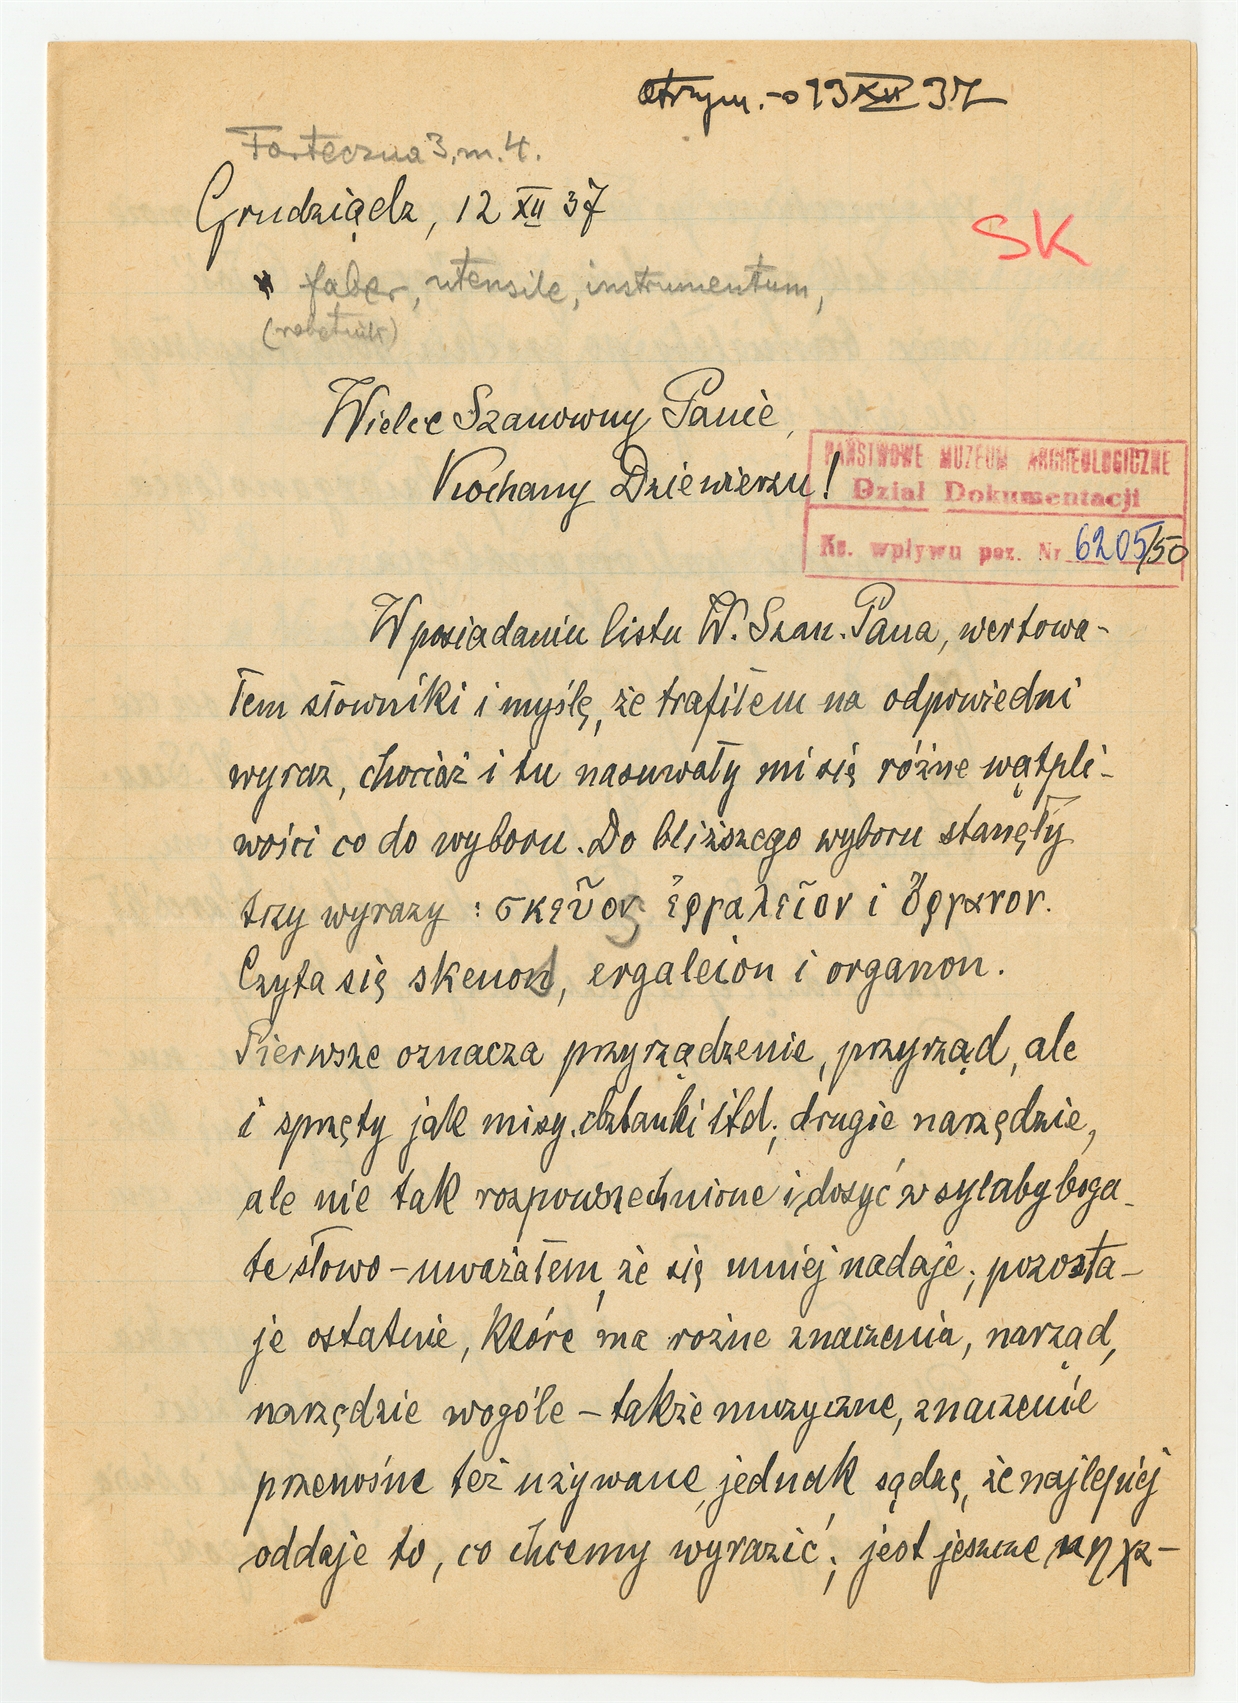 otrzym. -o 13 XII 37
Forteczna 3, m. 4.
Grudziądz, 12 XII 37
SK
faber, utensile, instrumentum,
(robotnik)
Wielce Szanowny Panie,
Kochany Dziewierzu!
PAŃSTWOWE MUZEUM ARCHEOLOGICZNE
Dział Dokumentacji
Ks. wpływu poz. Nr 6205/50
W posiadaniu listu W. Szan. Pana, wertowa-
łem słowniki i myślę, że trafiłem na odpowiedni
wyraz, chociaż i tu nasuwały mi się różne wątpli-
wości co do wyboru. Do bliższego wyboru stanęły
trzy wyrazy : σκεῦος ἐργαλεῖον i ὄργανον.
Czyta się skeuos, ergaleion i organon.
Pierwsze oznacza przyrządzenie, przyrząd, ale
i sprzęty jak misy, dzbanki itd.; drugie narzędzie,
ale nie tak rozpowszechnione i dosyć w sylaby boga-
te słowo – uważałem, że się mniej nadaje; pozosta-
je ostatnie, które ma rożne znaczenia, narząd,
narzędzie wogóle – także muzyczne, znaczenie
przenośne też używane, jednak sądzę, że najlepiej
oddaje to, co chcemy wyrazić; jest jeszcze